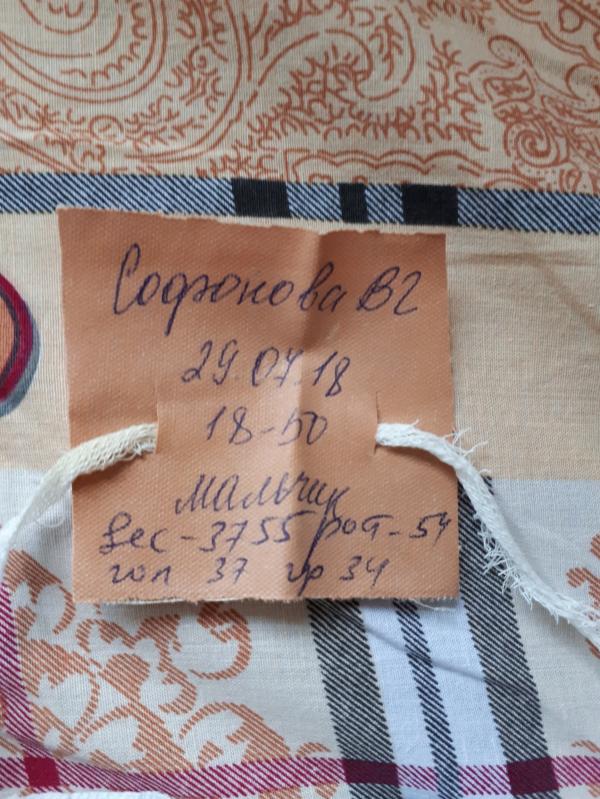 Софронова ВГ
29.07.18
18-50
мальчик
вес - 3755 рост - 54
гол 37 гр 34